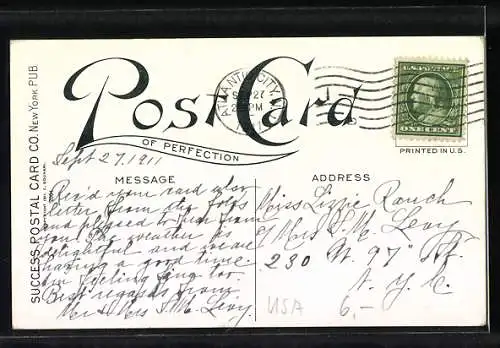 Post Card
OF PERFECTION
ATLANTIC CITY, N.J.
SEP 27
2 PM
1911
ONE CENT
PRINTED IN U.S.
SUCCESS POSTAL CARD CO. NEW YORK PUB.
Sept 27, 1911
MESSAGE
Rec'd your card also
letter from the folks
and pleased to hear from
you the weather is
delightful and we are
having a good time
am feeling too
Best regards from
Mr & Mrs S.M. Levy.
ADDRESS
Miss Lizzie Rauch
c/ Mrs S. M. Levy
230 W. 97" St
N. Y. C.
USA
6,-